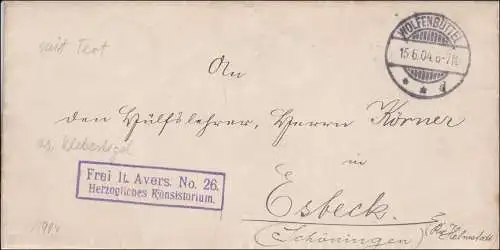 mit Text
WOLFENBÜTTEL
15.6.04. 6-7N.
* * d
An
den Hülfslehrer, Herrn Körner
rs. Klebesiegel
in
Frei lt. Avers. No. 26.
Herzogliches Konsistorium.
Esbeck.
(Schöningen)
Kr. Helmstedt
1904